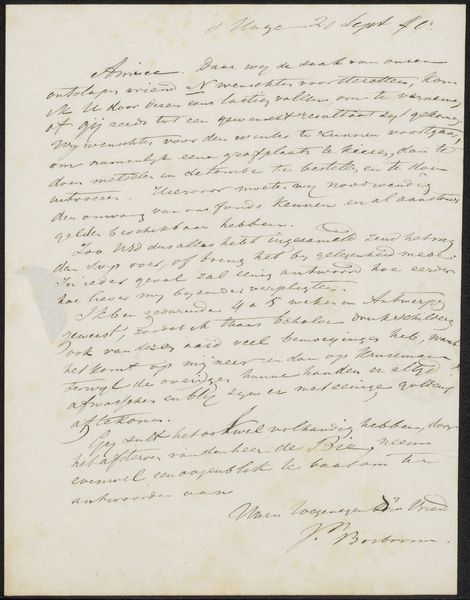 s Hage 21 Sept
Amice. Daar wij de zaak van onzen
ontslapen vriend N wenschten voorttezetten, kom
ik U door dezen eens lastig vallen, om te vernemen
of gij reeds tot een gewenscht resultaat zijt gekomen
Wij wenschten voor den winter te kunnen voortgaan,
om namenlijk eene grafplaats te kiezen, dan te
doen metselen en de tombe te bestellen en te doen
uitvoeren. Hiervoor moeten wij noodwendig
den omvang van ons fonds kennen en al aanstonds
gelden beschikbaar hebben.
Zoo UEd dus alles hebt ingezameld zend het mij
dan svp over, of breng het bij gelegenheid mede
In ieder geval zal eenig antwoord hoe eerder
hoe liever mij bijzonder verpligten.
Ik ben gedurende 4 a 5 weken in Antwerpen
geweest, zoodat ik thans behalve druk schilderen
ook van dezen aard veel bemoeijingen heb, want
het komt op mij neer en dan op Kruseman
terwijl de overigen hunne handen er altijd
afwasschen en blij zijn er met eenige guldens
aftekomen.
Gij zult het ook wel volhandig hebben, door
het aftreden van den heer de Bie, neem
evenwel een oogenblik te baat om te
antwoorden aan
Uwen toegenegen Vriend
J. Bosboom.